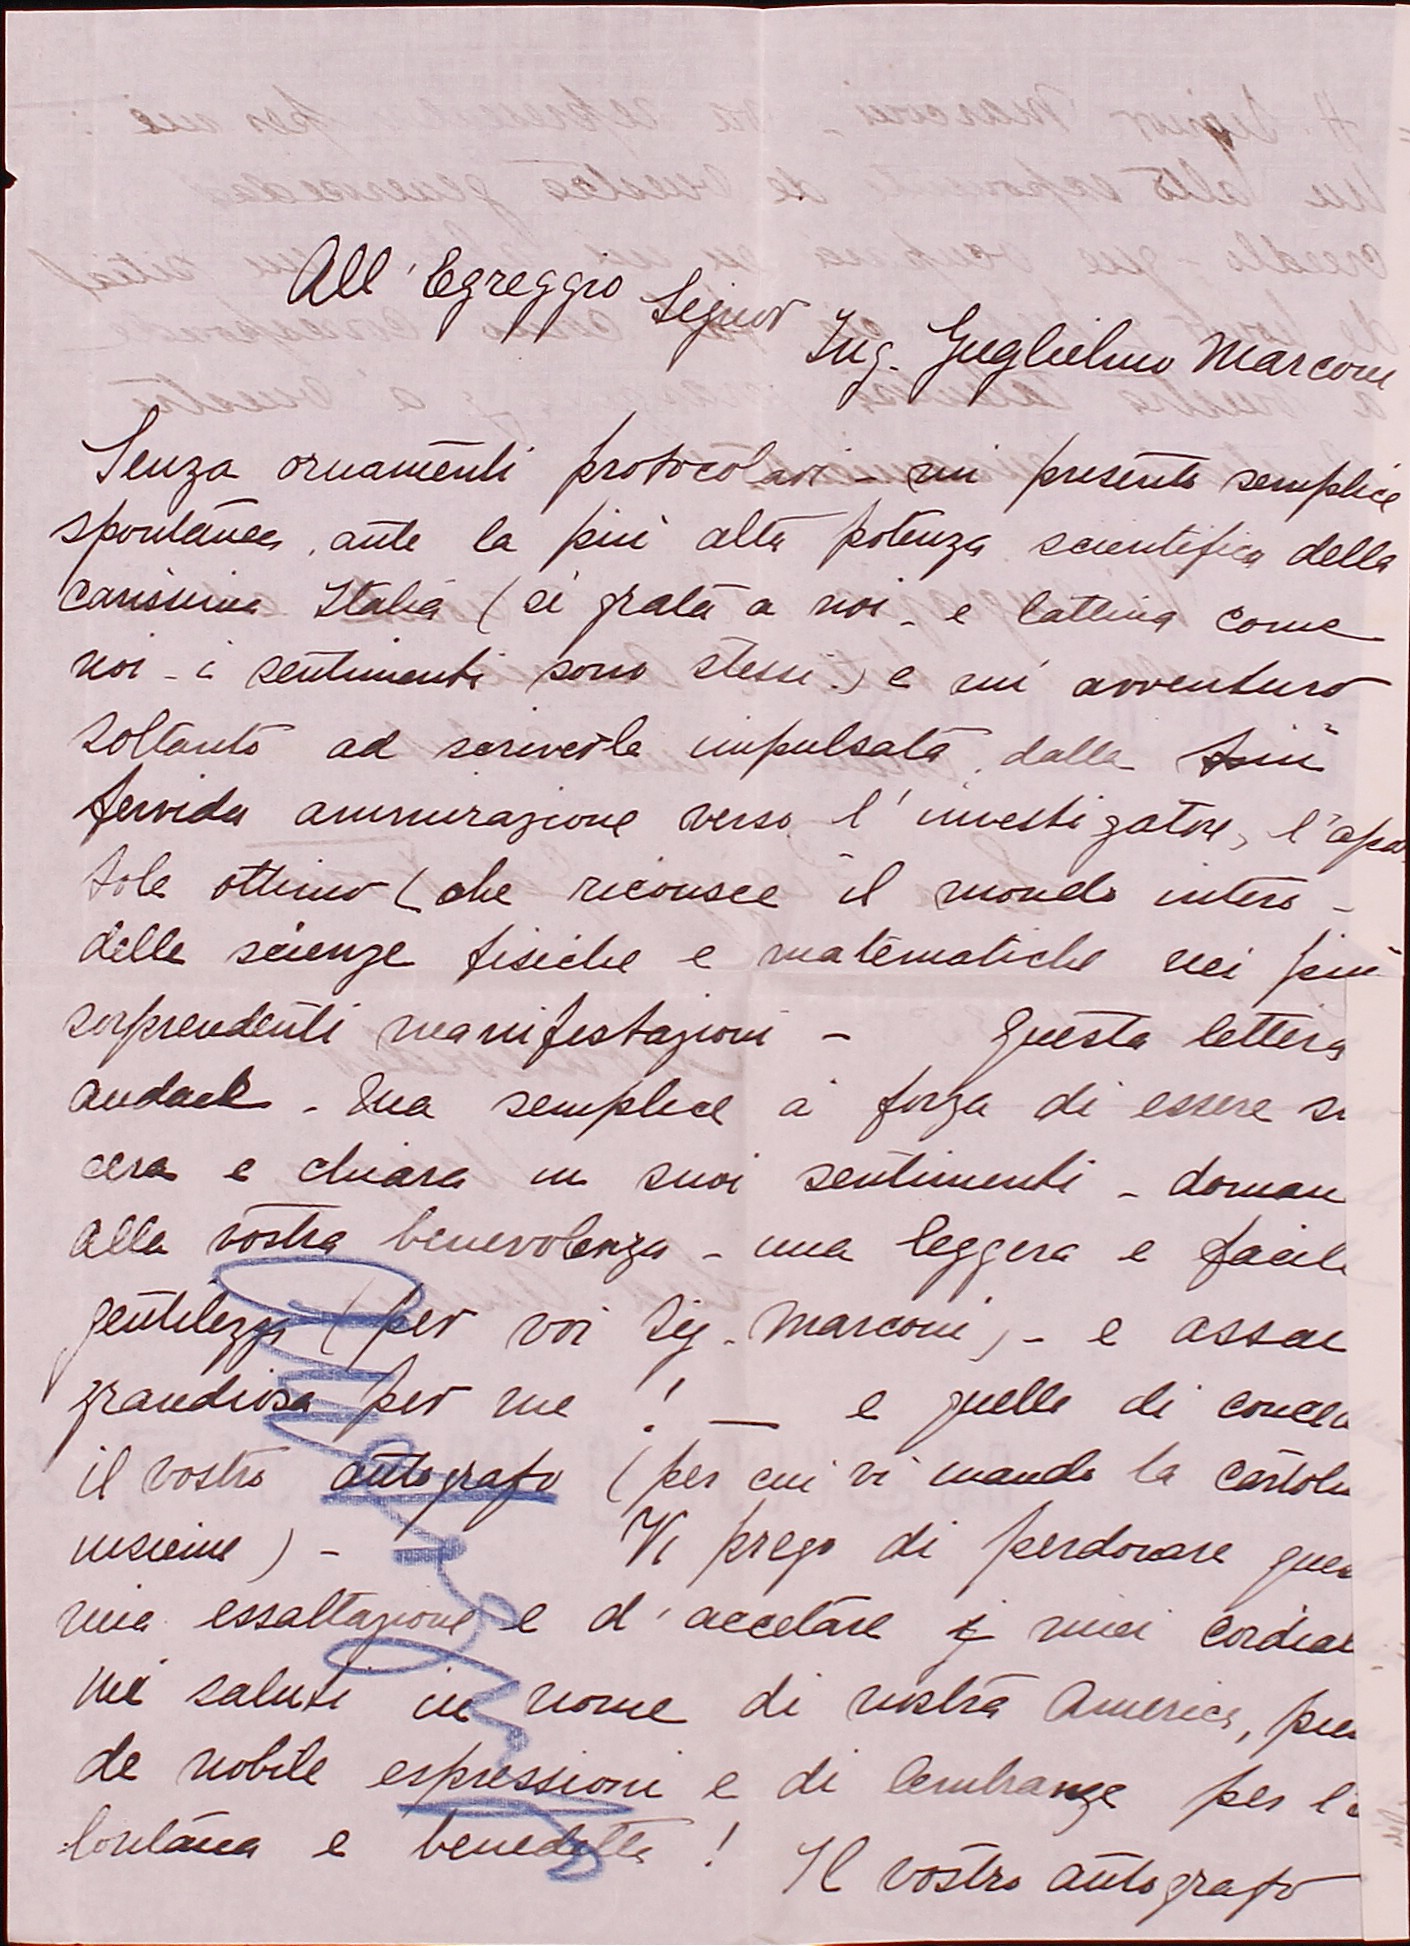 All' Egreggio Signor Ing. Guglielmo Marconi
Senza ornamenti protocolari - mi presento semplice
spontánea, ante la piú alta potenza scientifica della
carissima Italia (sí grata a noi - e lattina come
noi - i sentimenti sono stessi.) e mi avventuro
soltanto ad scriverle impulsata dalla piú
fervida ammirazione verso l'investigatore, l'apos
tole ottimo (che riconosce il mondo intero -
delle scienze fisiche e matematiche nei piú
sorprendenti manifestazioni - Questa lettera
audace - Ma semplice a forza di essere si
cera e chiara in suoi sentimenti - doman
alla vostra benevolenza - una leggera e facile
gentilezza (per voi Sig. Marconi) - e assai
grandiosa per me ! — e quella di conced
il vostro autografo (per cui vi mando la cartoli
insieme) - Vi prego di perdonare ques
mia essaltazione e d'accetare i miei cordial
mi saluti in nome di nostra America, pie
de nobile espressioni e di lembranze per l
lontána e benedetta ! Il vostro autografo